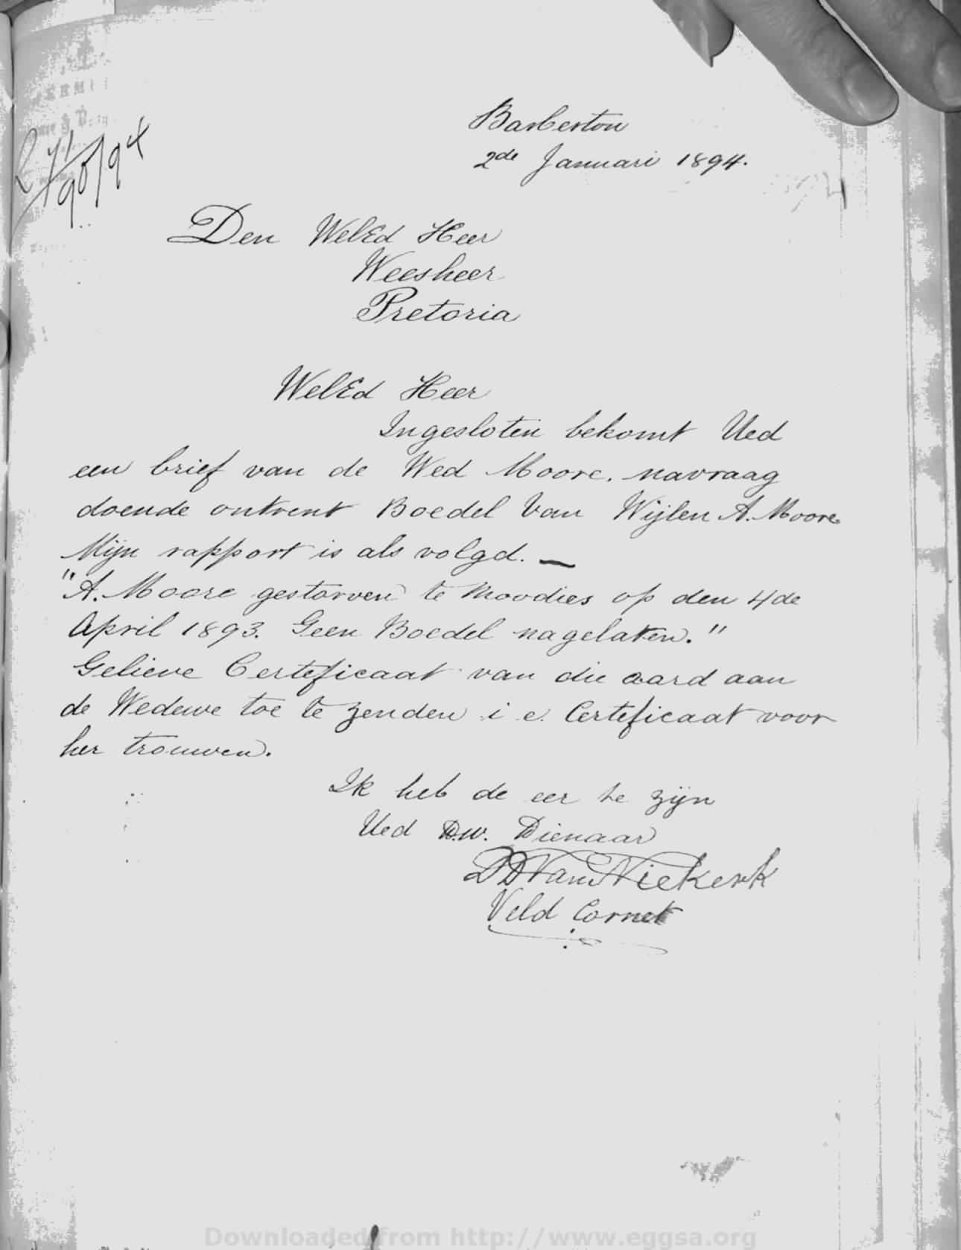 Barberton
2de Januari 1894.
Den WelEd Heer
Weesheer
Pretoria
WelEd Heer
Ingesloten bekomt Ued
een brief van de Wed Moore. navraag
doende ontrent Boedel Van Wijlen A. Moore
Mijn rapport is als volgd. —
"A. Moore gestorven te Moodies op den 4de
April 1893. Geen Boedel nagelaten."
Gelieve Certeficaat van die aard aan
de Wedewe toe te zenden i e. Certeficaat voor
her trouwen.
Ik heb de eer te zijn
Ued D.w. Dienaar
Van Niekerk
Veld Cornet
Downloaded from http://www.eggsa.org